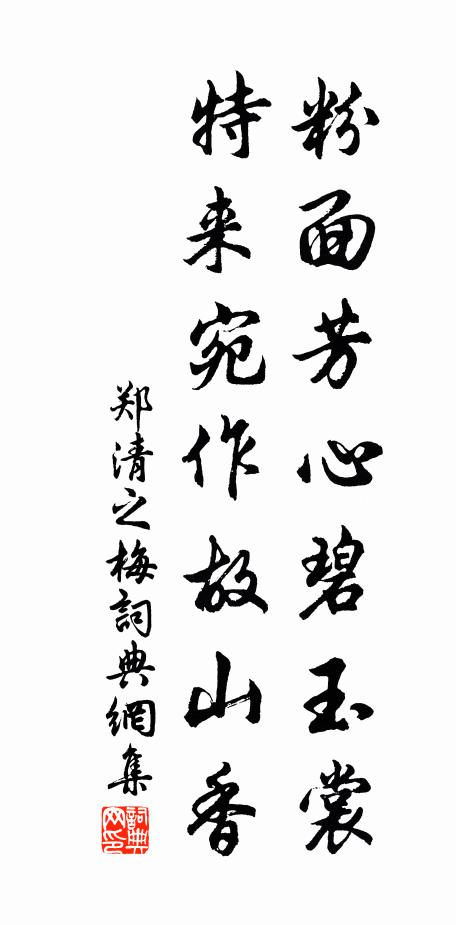 粉面芳心碧玉裳
特来宛作故山香
郑清之梅詞典網集
詞典网印